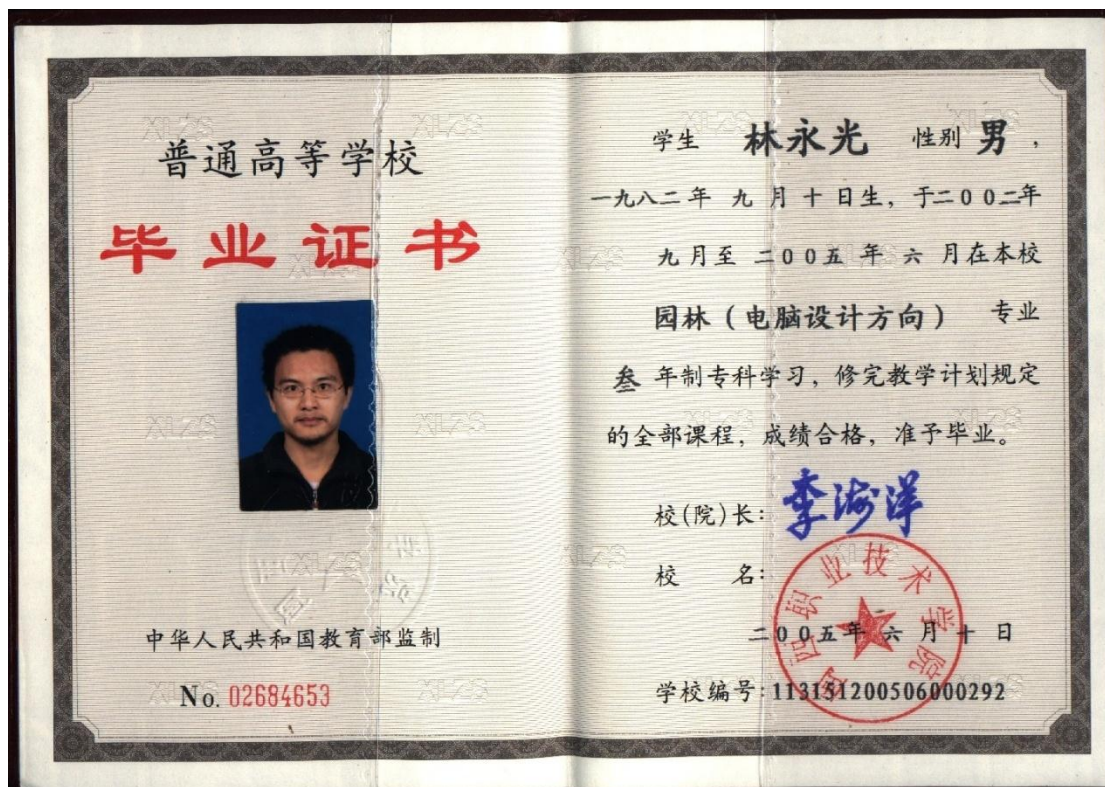 普通高等学校
毕业证书
中华人民共和国教育部监制
No. 02684653
学生 林永光 性别 男，
一九八二年 九 月 十 日生，于二00二年
九月至 二00五 年 六 月在本校
园林（电脑设计方向） 专业
叁 年制专科学习，修完教学计划规定
的全部课程，成绩合格，准予毕业。
校(院)长：李海洋
校 名：
职业技术学院
二00五年 六 月 十 日
学校编号：113151200506000292
XLZS